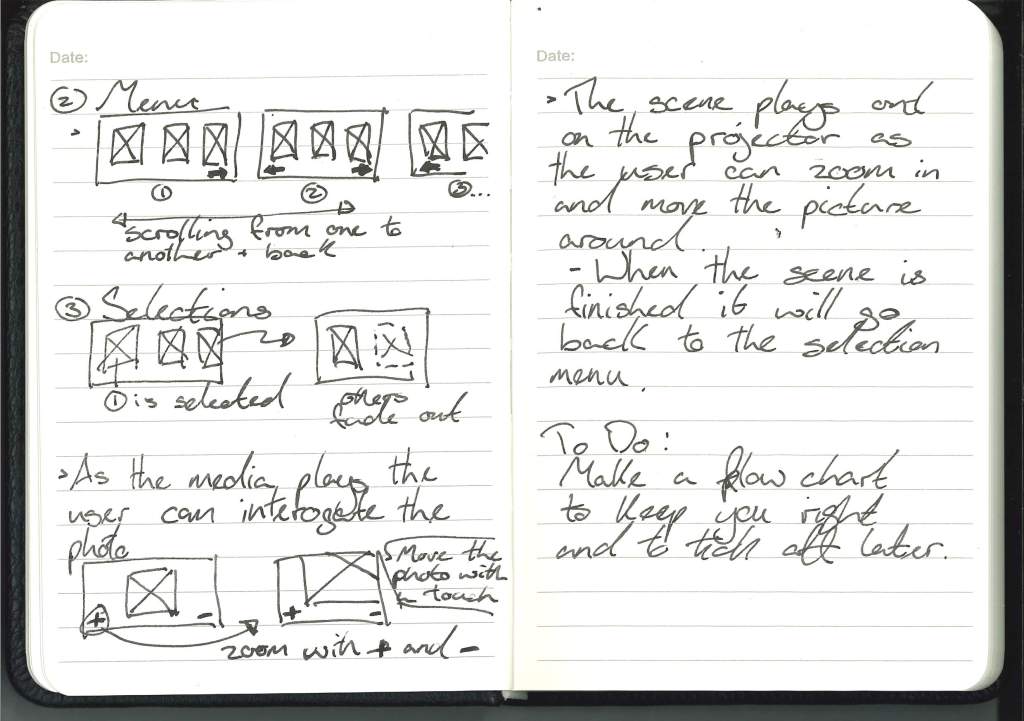 Date:
② Menu
① ② ③...
scrolling from one to
another + back
③ Selections
① is selected
others
fade out
As the media plays the
user can interogate the
photo
Move the
photo with
touch
+ - + -
zoom with + and -
Date:
The scene plays and
on the projector as
the user can zoom in
and move the picture
around.
- When the scene is
finished it will go
back to the selection
menu.
To Do:
Make a flow chart
to keep you right
and to tick off later.